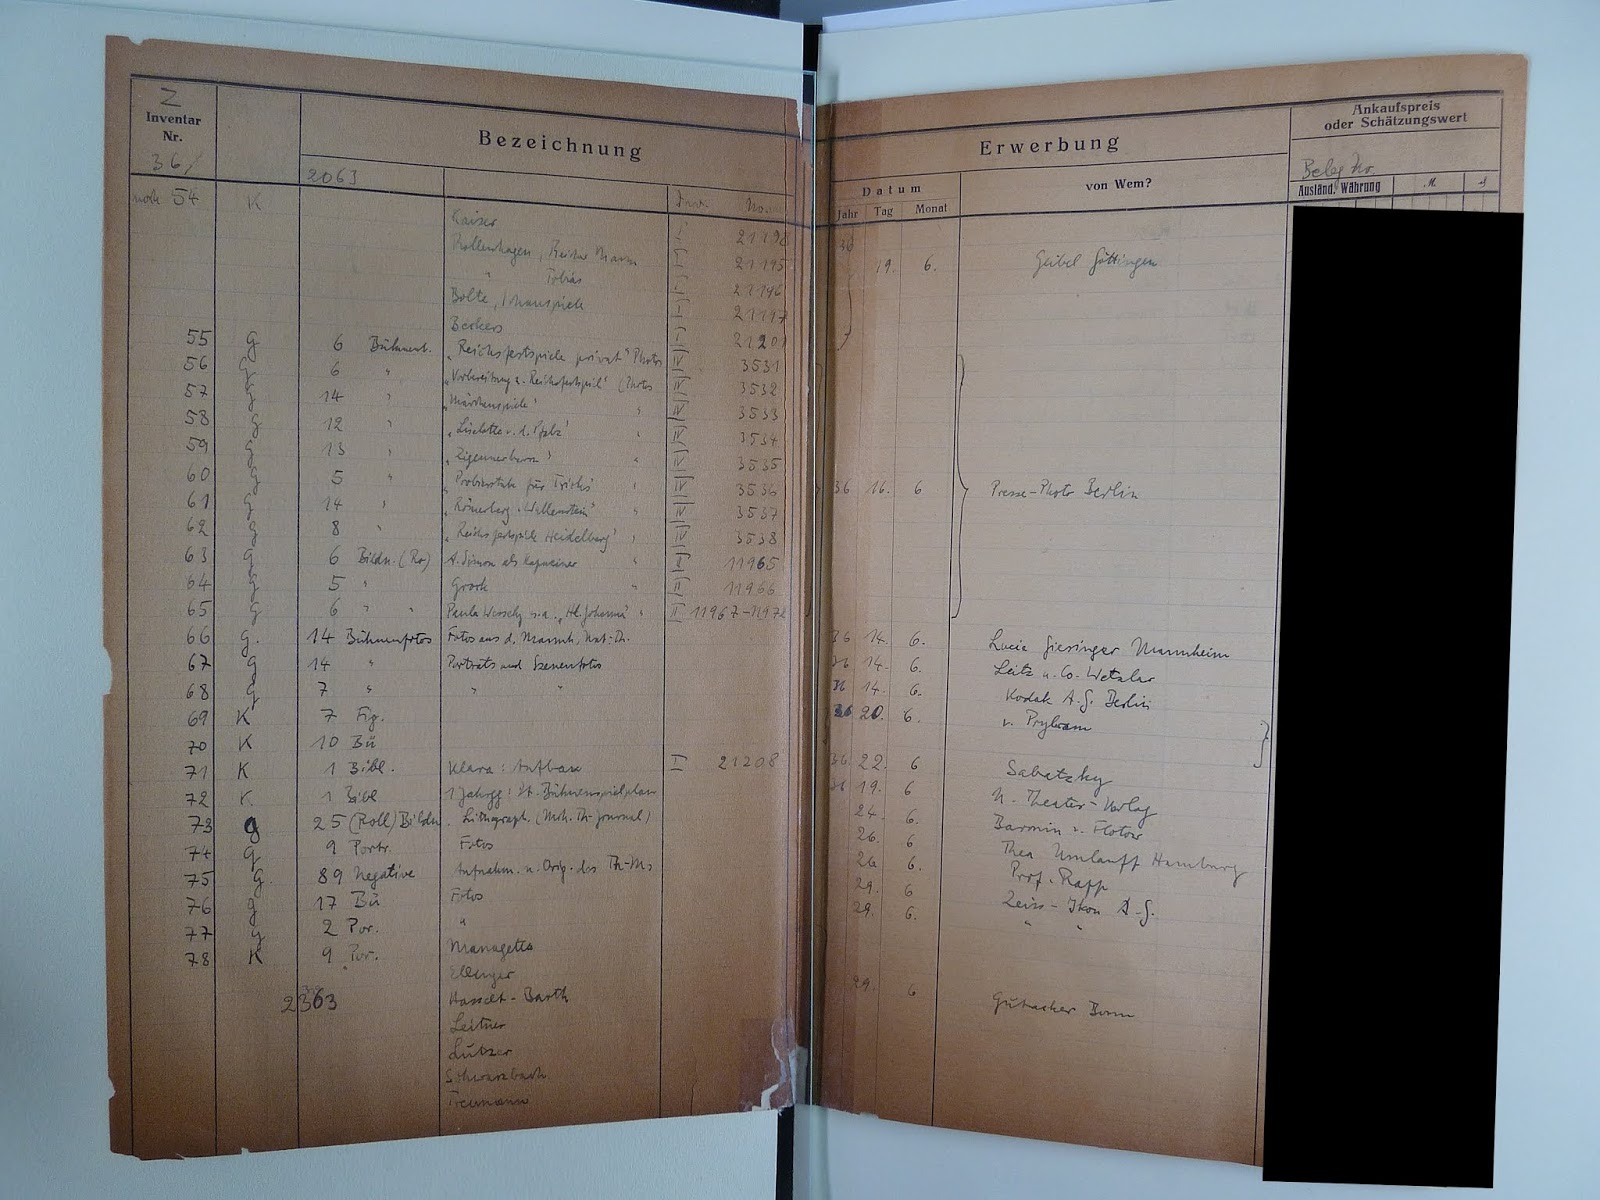 Z
Inventar
Nr.
36/
Bezeichnung
2063
Erwerbung
Datum
Jahr Tag Monat
von Wem?
Ankaufspreis
oder Schätzungswert
Beleg Nr.
Ausländ. Währung M.
noch 54 K
Kaiser I 21198
Rollenhagen, I 21195 36 19. 6. Geibel Göttingen
" Tobias I 21196
Bolte, I 21197
I
55 g 6 Bühnent. "Reichsfestspiele privat" Photos IV 3531
56 g 6 " "Vorbereitung z. Reichsfestspiel" (Photos IV 3532
57 g 14 " "Märchenspiele" " IV 3533
58 g 12 " "Liselotte v. d. Pfalz" IV 3534
59 g 13 " " IV 3535
60 g 5 " " IV 3536 36 16. 6 Presse-Photo Berlin
61 g 14 " "Römerberg. Wallenstein" " IV 3537
62 g 8 " "Reichsfestspiele Heidelberg" " IV 3538
63 g 6 Bildn. (Ro) A. Simon als Kapuziner " II 11965
64 g 5 " Grock " II 11966
65 g 6 " " Paula Wessely u.a. " II 11967-11972
66 g. 14 Bühnenfotos Fotos aus d. Mannh. Nat-Th. 36 14. 6. Lucia Giesinger Mannheim
67 g 14 " Porträts und Szenenfotos 36 14. 6. Leitz u. Co. Wetzlar
68 g 7 " " " 36 14. 6. Kodak A.G. Berlin
69 K 7 Fig. 36 20. 6. v. Prybram
70 K 10 Bü
71 K 1 Bibl. Klara: Aufbau I 21208 36. 22. 6 Sabatzky
72 K. 1 Bibl 1 Jahrgg: Bühnenspielplan 36 19. 6 N. Theater-Verlag
73 g 25 (Roll) Bildn. Lithograph. (Mch. Th. Journal) 24. 6. Barmin v. Flotow
74 g 9 Portr. Fotos 26. 6 Thea Umlauff Hamburg
75 G. 89 Negative Aufnahm. u. Orig. des Th-Ms 26 6. Prof. Rapp
76 g 17 Bü Fotos 29. 6 Zeiss-Ikon A.G.
77 g 2 Por. " 29. 6. " "
78 K 9 Por. Managetta
Ellinger
2363 Hasselt-Barth 29. 6 Gutacker Bonn
Leitner
Lutzer
Schwarzbach
Treumann